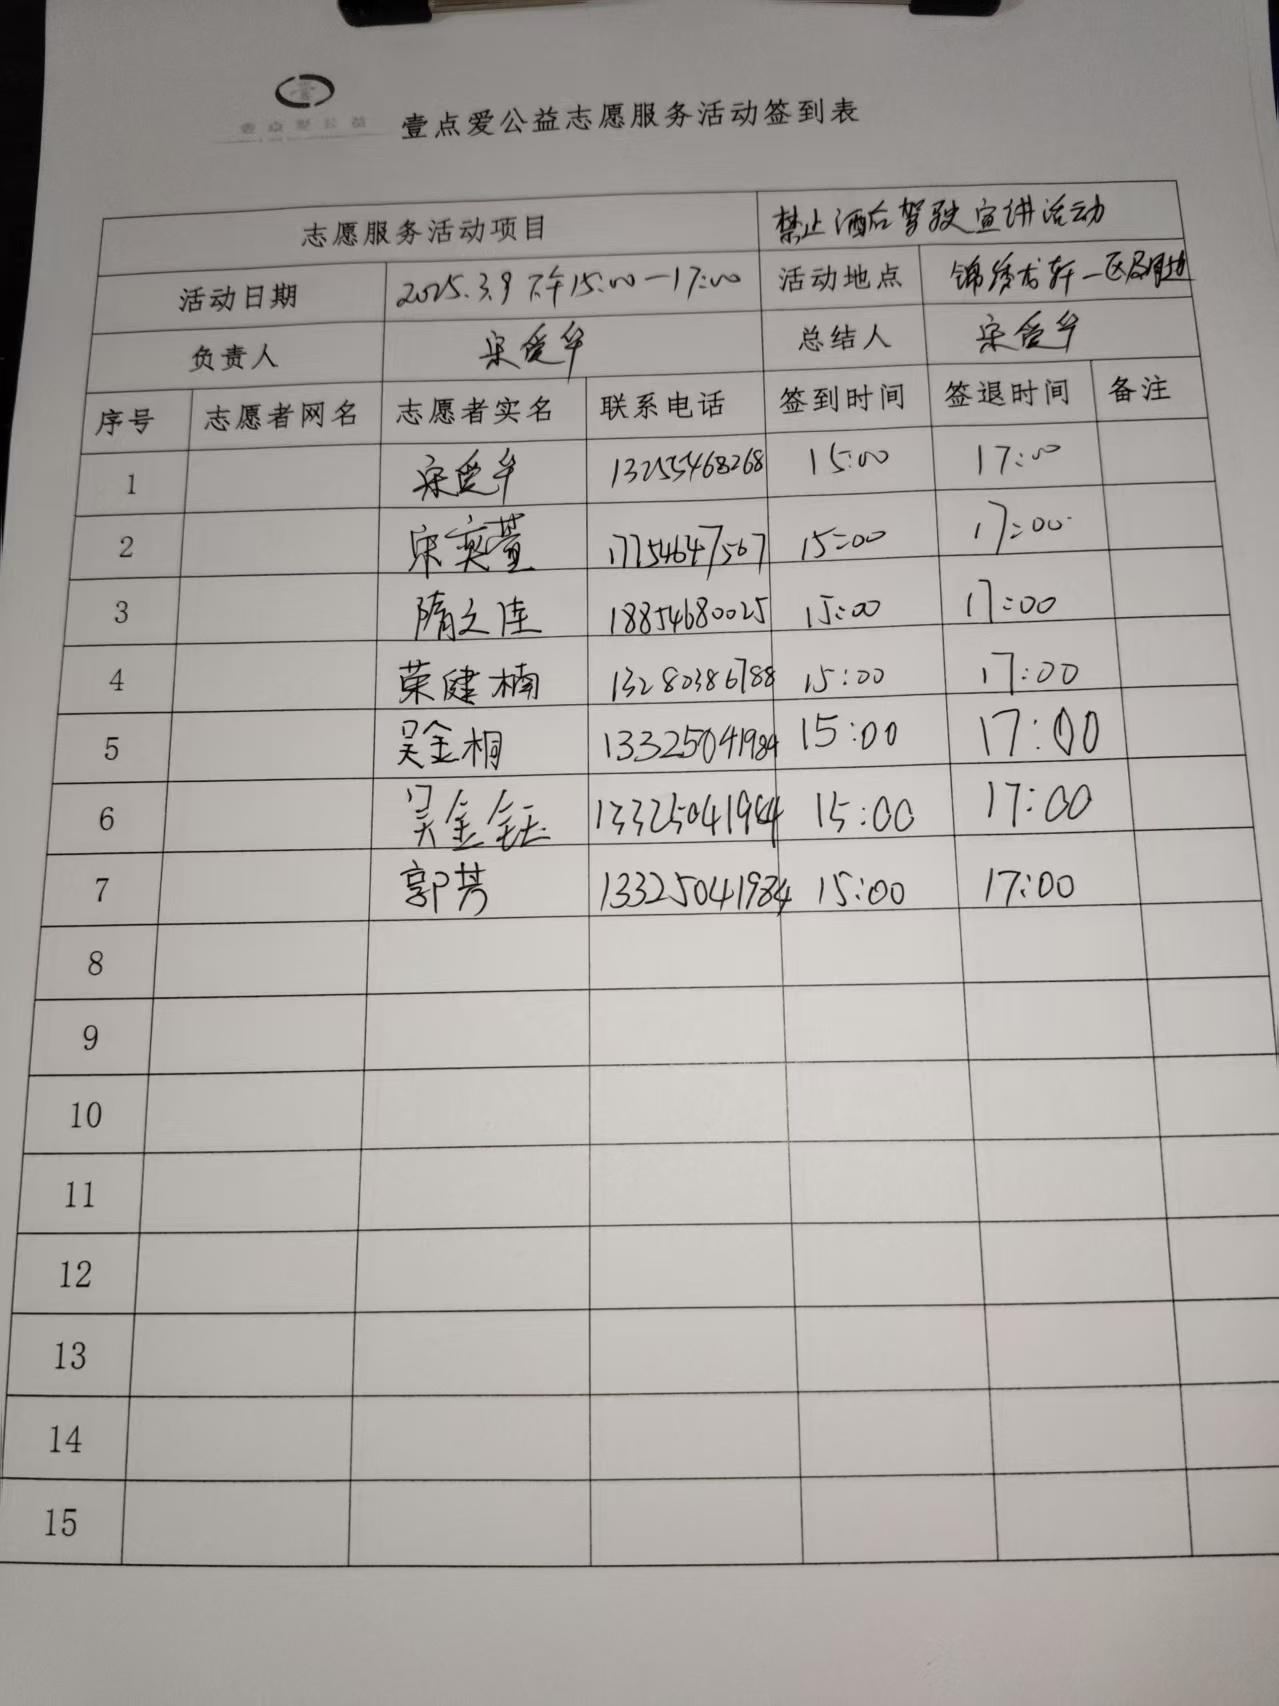 壹点爱公益
壹点爱公益志愿服务活动签到表
志愿服务活动项目 禁止酒后驾驶宣讲活动
活动日期 2025.3.9 下午15:00—17:00 活动地点 锦绣龙轩一区及周边
负责人 宋爱华 总结人 宋爱华
序号 志愿者网名 志愿者实名 联系电话 签到时间 签退时间 备注
1 宋爱华 13255468268 15:00 17:00
2 宋奕萱 17754647567 15:00 17:00
3 隋文佳 18854680025 15:00 17:00
4 荣健楠 13280386788 15:00 17:00
5 吴金桐 13325041984 15:00 17:00
6 吴金钰 13325041984 15:00 17:00
7 郭芳 13325041984 15:00 17:00
8
9
10
11
12
13
14
15